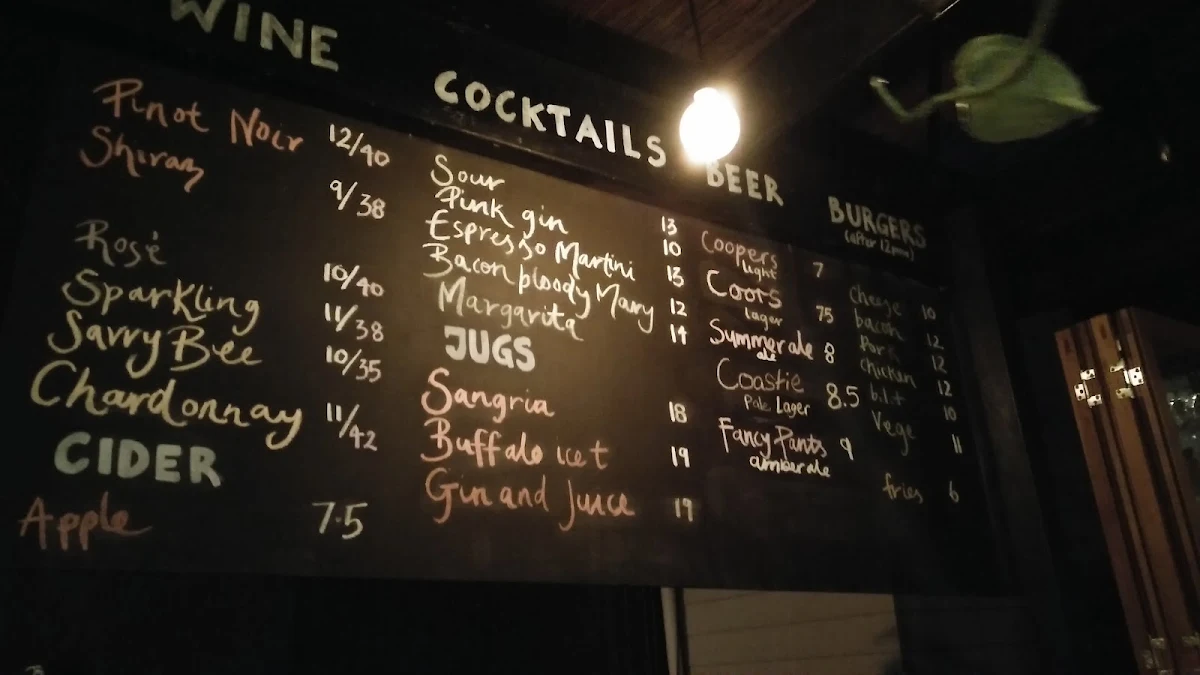 WINE
Pinot Noir 12/40
Shiraz 9/38
Rosé 10/40
Sparkling 11/38
Savvy Bee 10/35
Chardonnay 11/42
CIDER
Apple 7.5
COCKTAILS
Sour 13
Pink gin 10
Espresso Martini 13
Bacon bloody Mary 12
Margarita 14
JUGS
Sangria 18
Buffalo ice t 19
Gin and Juice 19
BEER
Coopers 7
light
Coors 75
lager
Summer ale 8
ale 8
Coastie 8.5
Pale Lager
Fancy Pants 9
amber ale
BURGERS
(after 12pm)
Cheese 10
bacon 12
Pork 12
chicken 12
b.l.t 10
Vege 11
fries 6